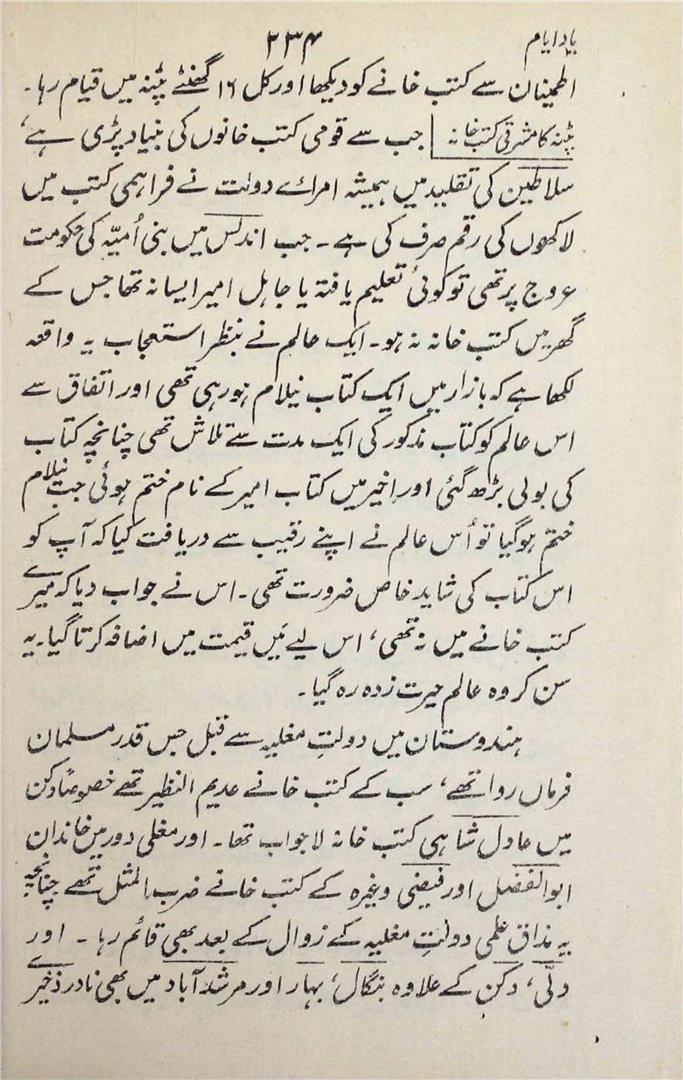 یادِ ایام
۲۳۴
اطمینان سے کتب خانے کو دیکھا اور کل ۱۶ گھنٹے پٹنہ میں قیام رہا۔
پٹنہ کا مشرقی کتب خانہ جب سے قومی کتب خانوں کی بنیاد پڑی ہے،
سلاطین کی تقلید میں ہمیشہ امرائے دولت نے فراہمی کتب میں
لاکھوں کی رقم صرف کی ہے۔ جب اندلس میں بنی اُمیّہ کی حکومت
عروج پر تھی تو کوئی تعلیم یافتہ یا جاہل امیر ایسا نہ تھا جس کے
گھر میں کتب خانہ نہ ہو۔ ایک عالم نے بنظر استعجاب یہ واقعہ
لکھا ہے کہ بازار میں ایک کتاب نیلام ہو رہی تھی اور اتفاق سے
اس عالم کو کتاب مذکور کی ایک مدت سے تلاش تھی چنانچہ کتاب
کی بولی بڑھ گئی اور اخیر میں کتاب امیر کے نام ختم ہوئی جب نیلام
ختم ہو گیا تو اُس عالم نے اپنے رقیب سے دریافت کیا کہ آپ کو
اس کتاب کی شاید خاص ضرورت تھی۔ اس نے جواب دیا کہ میرے
کتب خانے میں نہ تھی، اس لیے مَیں قیمت میں اضافہ کرتا گیا۔ یہ
سن کر وہ عالم حیرت زدہ رہ گیا۔
ہندوستان میں دولتِ مغلیہ سے قبل جس قدر مسلمان
فرماں روا تھے، سب کے کتب خانے عدیم النظیر تھے خصوصاً دکن
میں عادل شاہی کتب خانہ لاجواب تھا۔ اور مغلی دور میں خاندان
ابوالفضل اور فیضی وغیرہ کے کتب خانے ضرب المثل تھے چنانچہ
یہ مذاق علمی دولتِ مغلیہ کے زوال کے بعد بھی قائم رہا۔ اور
دلّی، دکن کے علاوہ بنگال، بہار اور مرشدآباد میں بھی نادر ذخیرے